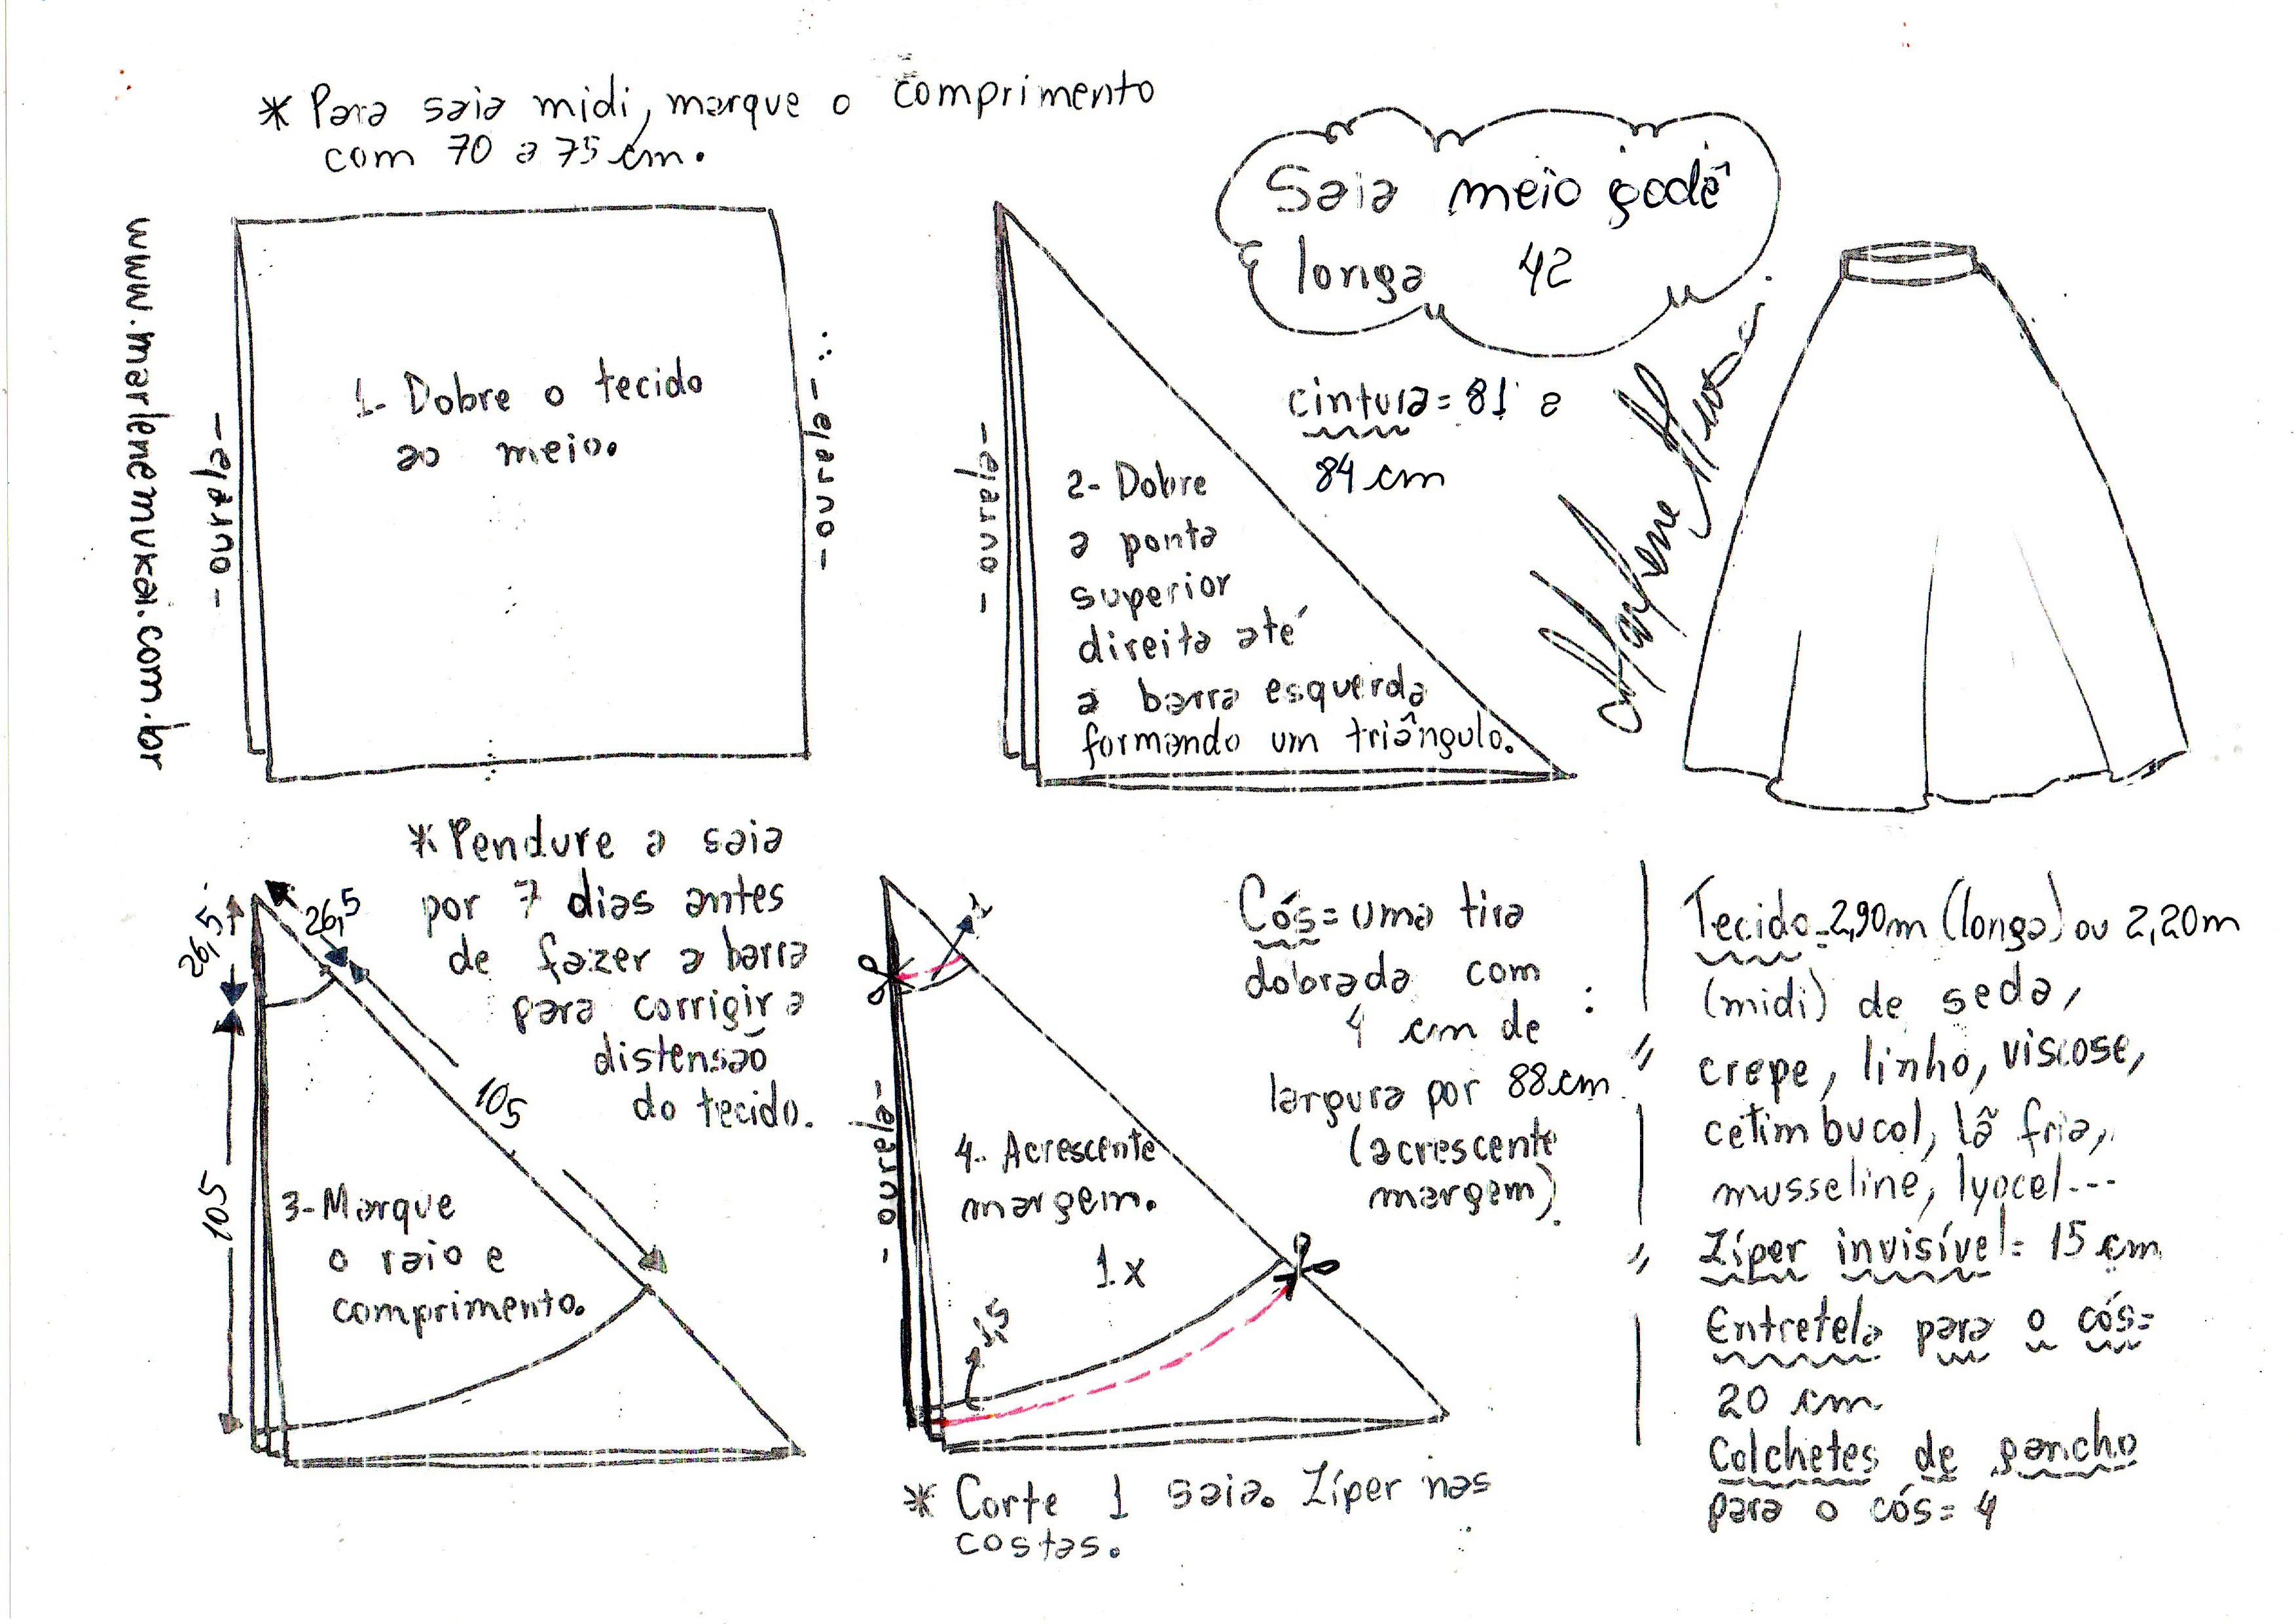 * Para saia midi, marque o comprimento
com 70 a 75 cm.
Saia meio godê
longa 42
www.marlenemukai.com.br
- ourela -
1- Dobre o tecido
ao meio.
- ourela -
- ourela -
2- Dobre
a ponta
superior
direita até
a barra esquerda
formando um triângulo.
cintura = 81 a
84 cm
Marlene Mukai
* Pendure a saia
por 7 dias antes
de fazer a barra
para corrigir a
distensão
do tecido.
26,5
26,5
105
105
3- Marque
o raio e
comprimento.
- ourela -
4- Acrescente
margem.
1x
* Corte 1 saia. Zíper nas
costas.
Cós = uma tira
dobrada com
4 cm de
largura por 88 cm
(acrescente
margem).
Tecido = 2,90m (longa) ou 2,20m
(midi) de seda,
crepe, linho, viscose,
cetim bucol, lã fria,
musseline, lyocel...
Zíper invisível = 15 cm
Entretela para o cós =
20 cm
Colchetes de gancho
para o cós = 4